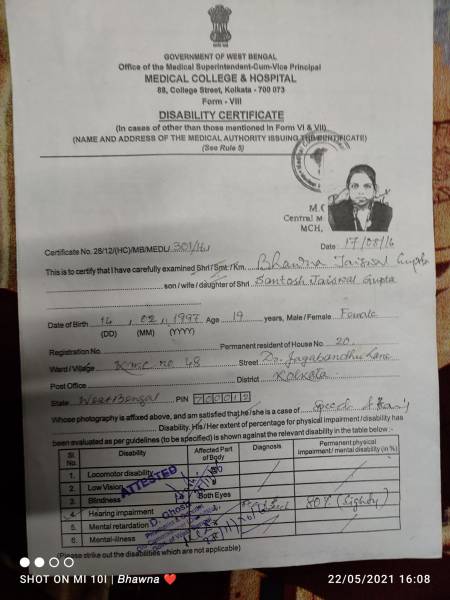 GOVERNMENT OF WEST BENGAL
Office of the Medical Superintendent-Cum-Vice Principal
MEDICAL COLLEGE & HOSPITAL
88, College Street, Kolkata - 700 073
Form - VIII
DISABILITY CERTIFICATE
(In cases of other than those mentioned in Form VI & VII)
(NAME AND ADDRESS OF THE MEDICAL AUTHORITY ISSUING THE CERTIFICATE)
(See Rule 5)
M.C
Central M
MCH,
Certificate No. 28/12/(HC)/MB/MEDL/ 301/16 Date 17/08/16
This is to certify that I have carefully examined Shri / Smt. / Km. Bhawna Jaiswal Gupta
son / wife / daughter of Shri Santosh Jaiswal Gupta
Date of Birth 14 02 1997 Age 19 years, Male / Female Female
(DD) (MM) (YYYY)
Registration No. Permanent resident of House No. 20
Ward / Village K.M.C no. 48 Street Dr. Jagabandhu Lane
Post Office District Kolkata
State West Bengal PIN 700012
Whose photography is affixed above, and am satisfied that he / she is a case of Speech &
Disability. His / Her extent of percentage for physical impairment / disability has
been evaluated as per guidelines (to be specified) is shown against the relevant disability in the table below :-
Sl. No. Disability Affected Part of Body Diagnosis Permanent physical impairment / mental disability (in %)
1. Locomotor disability
2. Low Vision
3. Blindness Both Eyes
4. Hearing impairment 80% (Eighty)
5. Mental retardation
6. Mental-illness
ATTESTED
(Please strike out the disabilities which are not applicable)
SHOT ON MI 10I | Bhawna ❤️ 22/05/2021 16:08